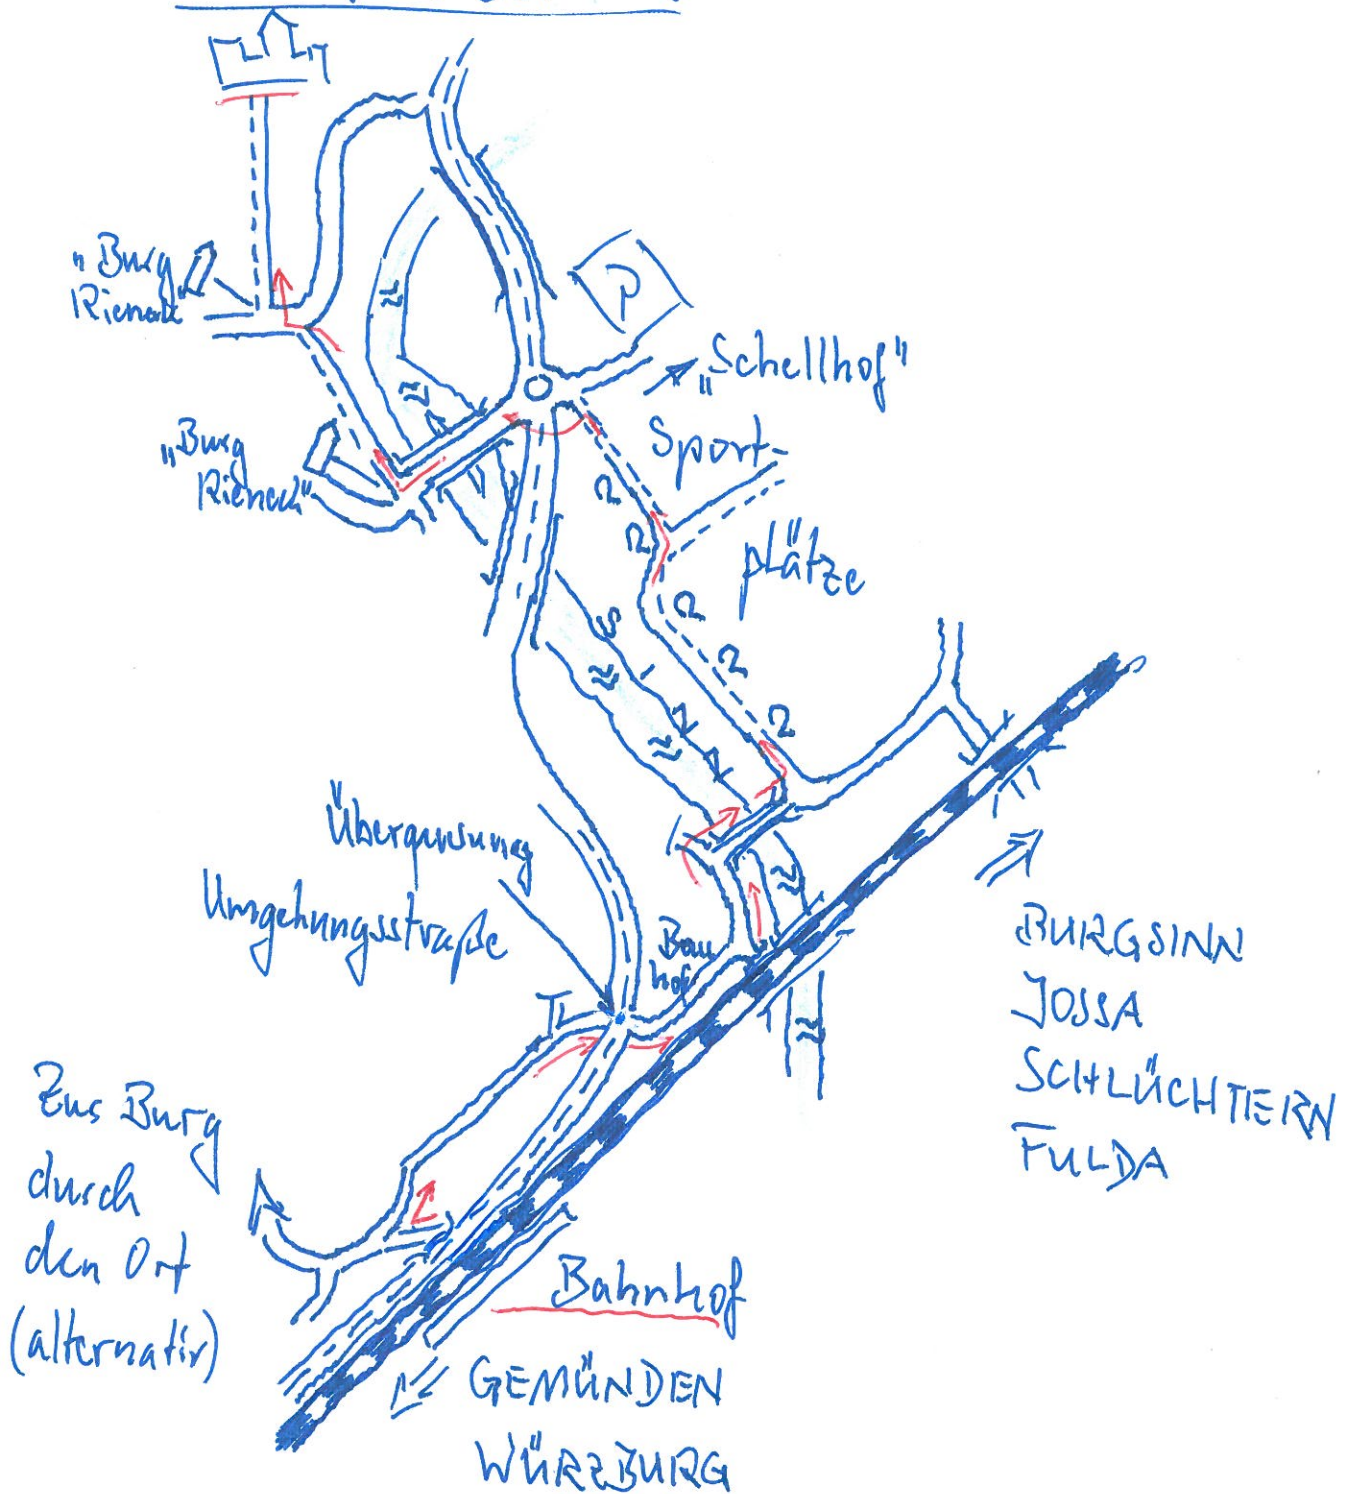 "Burg
Rieneck"
P
"Schellhof"
"Burg
Rieneck"
Sport-
plätze
Überquerung
Umgehungsstraße
Bau
hof
BURGSINN
JOSSA
SCHLÜCHTERN
FULDA
Zur Burg
durch
den Ort
(alternativ)
Bahnhof
GEMÜNDEN
WÜRZBURG